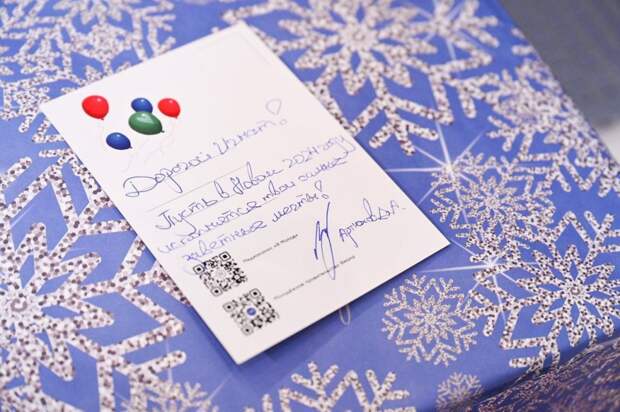 Дорогой Игнат!
Пусть в Новом 2024 году
исполнятся твои самые
заветные мечты!
Артюхов А.